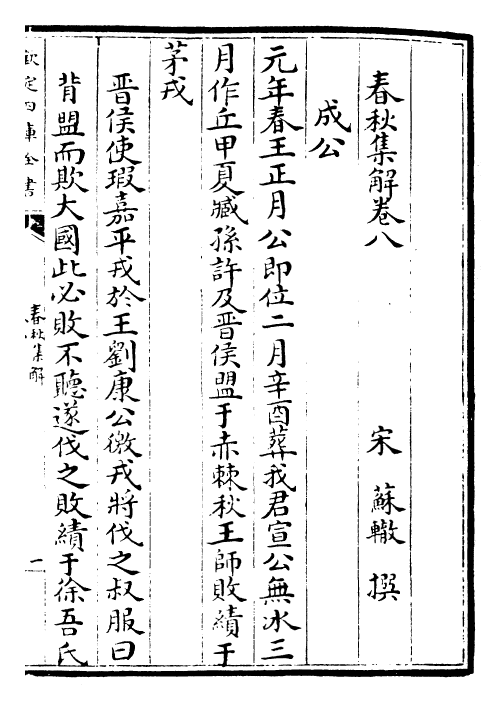 春秋集解卷八
宋 蘇轍 撰
成公
元年春王正月公即位二月辛酉葬我君宣公無冰三
月作丘甲夏臧孫許及晉侯盟于赤棘秋王師敗績于
茅戎
晉侯使瑕嘉平戎於王劉康公徼戎將伐之叔服曰
背盟而欺大國此必敗不聽遂伐之敗績于徐吾氏
欽定四庫全書
春秋集解
一